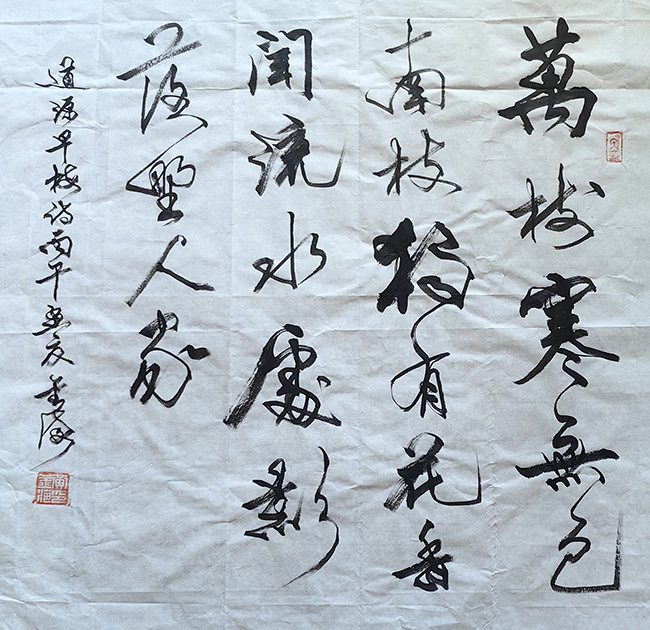 萬樹寒無色
南枝獨有花香
聞流水處影
落野人家
道源早梅詩丙午